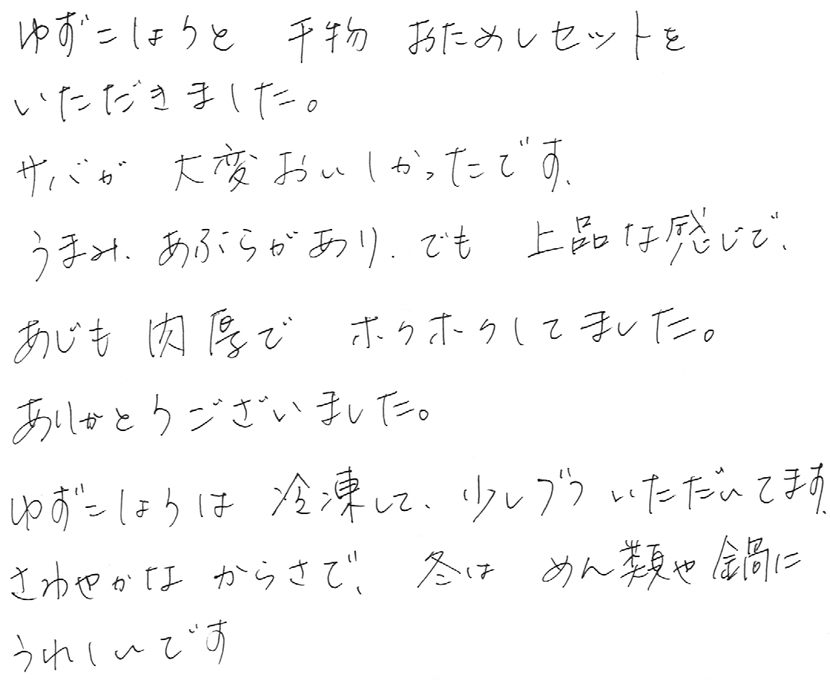 ゆずこしょうと 干物 おためしセットを
いただきました。
サバが 大変おいしかったです、
うまみ、あぶらがあり、でも 上品な感じで、
あじも 肉厚で ホクホクしてました。
ありがとうございました。
ゆずこしょうは 冷凍して、少しづつ いただいてます、
さわやかな からさで、冬は めん類や鍋に
うれしいです